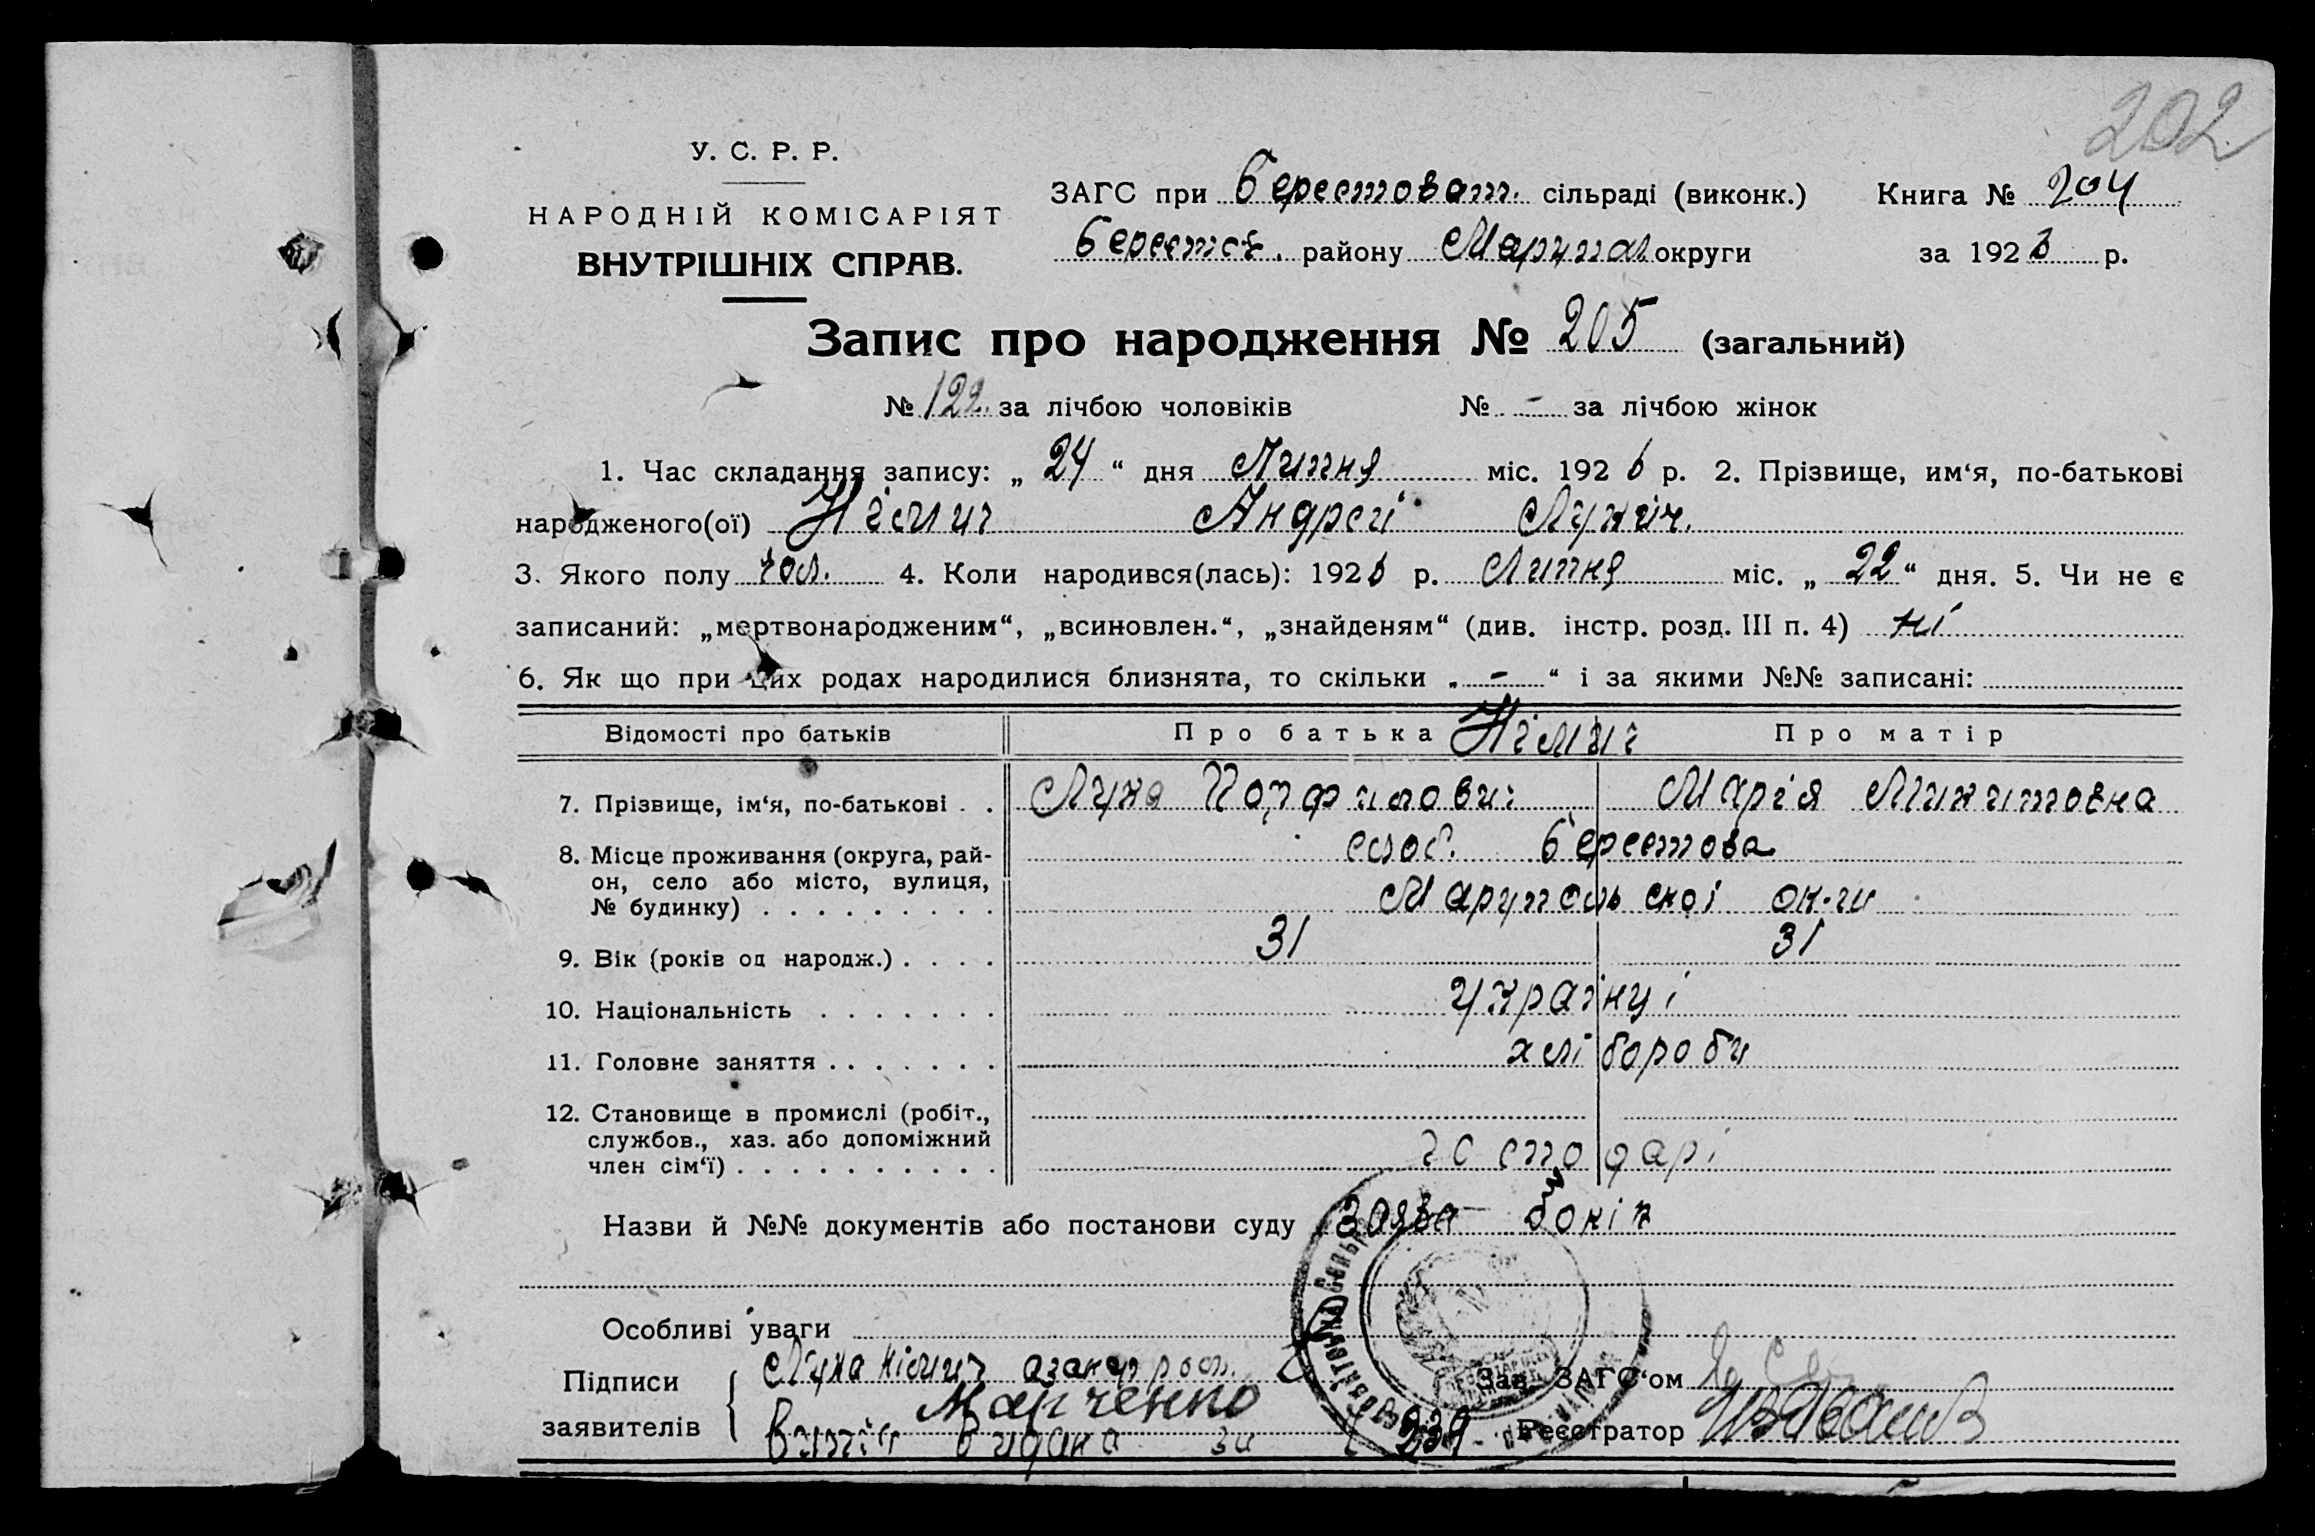 202
У. С. Р. Р.
НАРОДНІЙ КОМІСАРІЯТ
ВНУТРІШНІХ СПРАВ.
ЗАГС при Берестоват. сільраді (виконк.) Книга № 204
Берестов. району Маріупол округи за 1926 р.
Запис про народження № 205 (загальний)
№ 122. за лічбою чоловіків № - за лічбою жінок
1. Час складання запису: „ 24 “ дня Липня міс. 1926 р. 2. Прізвище, им‘я, по-батькові
народженого(ої) Німич Андрей Лукіч.
3. Якого полу чол. 4. Коли народився(лась): 1926 р. Липня міс. „ 22 “ дня. 5. Чи не є
записаний: „мертвонародженим“, „всиновлен.“, „знайденям“ (див. інстр. розд. III п. 4) ні
6. Як що при цих родах народилися близнята, то скільки „ - “ і за якими №№ записані:
Відомості про батьків Про батька Німич Про матір
7. Прізвище, ім‘я, по-батькові . . Лука Порфилович Марія Микитовна
8. Місце проживання (округа, рай-
он, село або місто, вулиця,
№ будинку) . . . . . . . . .
слоб. Берестова
Маріупольскоі ок-ги
9. Вік (років од народж.) . . . . 31 31
10. Національність . . . . . . . українці
11. Головне заняття . . . . . . . хлібороби
12. Становище в промислі (робіт.,
службов., хаз. або допоміжний
член сім‘ї) . . . . . . . . . . . господарі
Назви й №№ документів або постанови суду заява
Особливі уваги
Підписи
заявителів
Лука Німич
Марченко
Витяг видана за 239
Зав. ЗАГС‘ом
Реєстратор